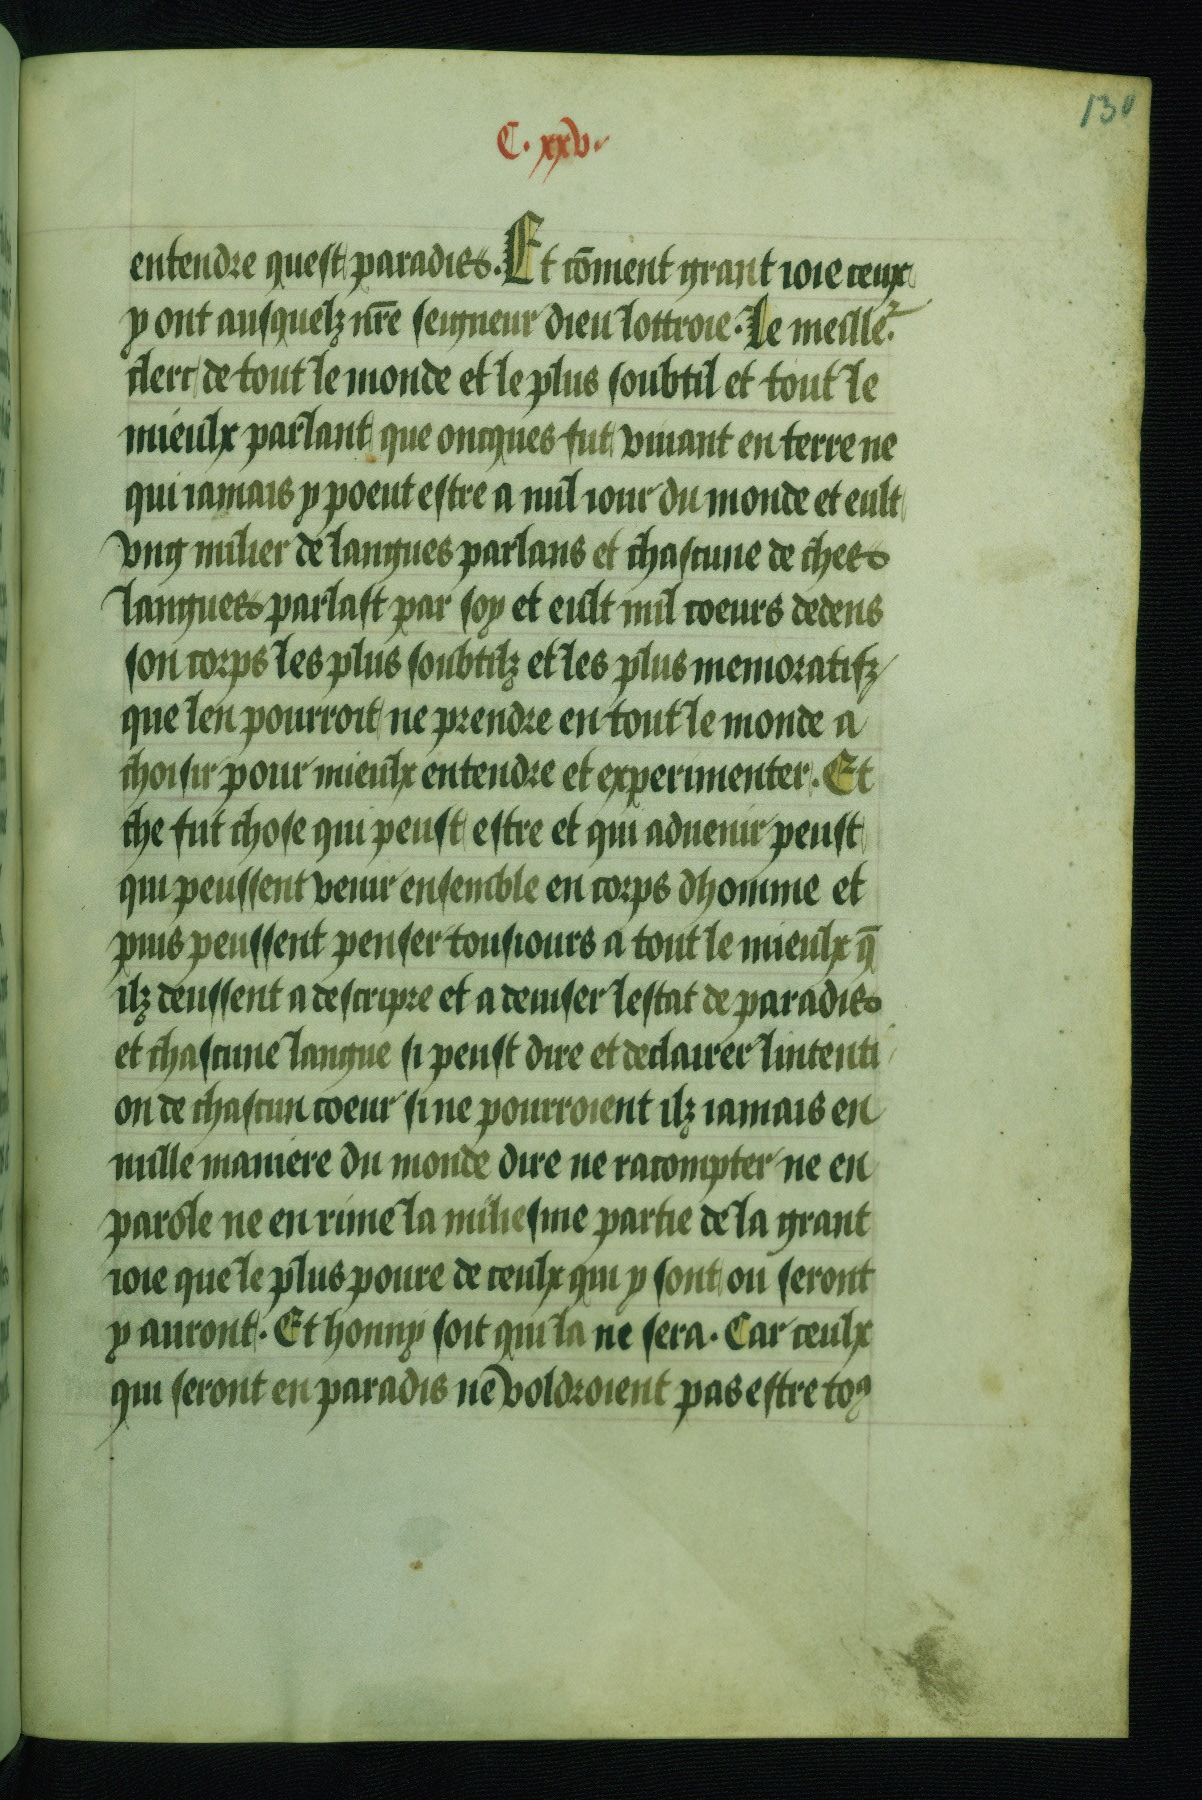 130
C. xxv.
entendre quest paradis. Et cōment grant ioie ceux
y ont ausquelz nr̄e seigneur dieu lottroie. Le meille᷑
clerc de tout le monde et le plus soubtil et tout le
mieulx parlant que oncques fut viuant en terre ne
qui iamais y poeut estre a nul iour du monde et eult
vng milier de langues parlans et chascune de ches
langues parlast par soy et eult mil coeurs dedens
son corps les plus soubtilz et les plus memoratifz
que len pourroit ne prendre en tout le monde a
choisir pour mieulx entendre et experimenter. Et
che fut chose qui peust estre et qui aduenir peust
qui peussent venir ensemble en corps dhomme et
puis peussent penser tousiours a tout le mieulx q̄
ilz deussent a descripre et a deuiser lestat de paradis
et chascune langue si peust dire et declairer lintenti
on de chascun coeur si ne pourroient ilz iamais en
nulle maniere du monde dire ne racompter ne en
parole ne en rime la miliesme partie de la grant
ioie que le plus poure de ceulx qui y sont ou seront
y auront. Et honny soit qui la ne sera. Car ceulx
qui seront en paradis ne voldroient pas estre toꝰ